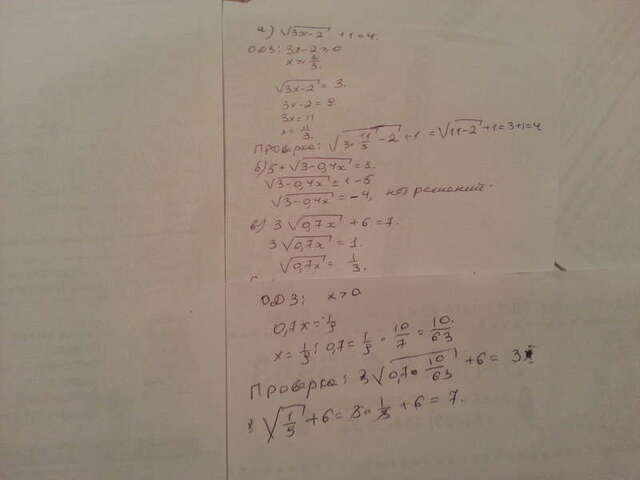 а) √3x-2 + 1 = 4.
ОДЗ: 3x-2 ≥ 0
x ≥ 2/3.
√3x-2 = 3.
3x-2 = 9
3x = 11
x = 11/3.
Проверка: √3·11/3-2 + 1 = √11-2 + 1 = 3+1 = 4
б) 5 + √3-0,4x = 1.
√3-0,4x = 1-5
√3-0,4x = -4, нет решений.
в) 3√0,7x + 6 = 7.
3√0,7x = 1.
√0,7x = 1/3.
ОДЗ: x > 0
0,7x = 1/9
x = 1/9 : 0,7 = 1/9 · 10/7 = 10/63
Проверка: 3√0,7·10/63 + 6 = 3
3√1/9 + 6 = 3·1/3 + 6 = 7.